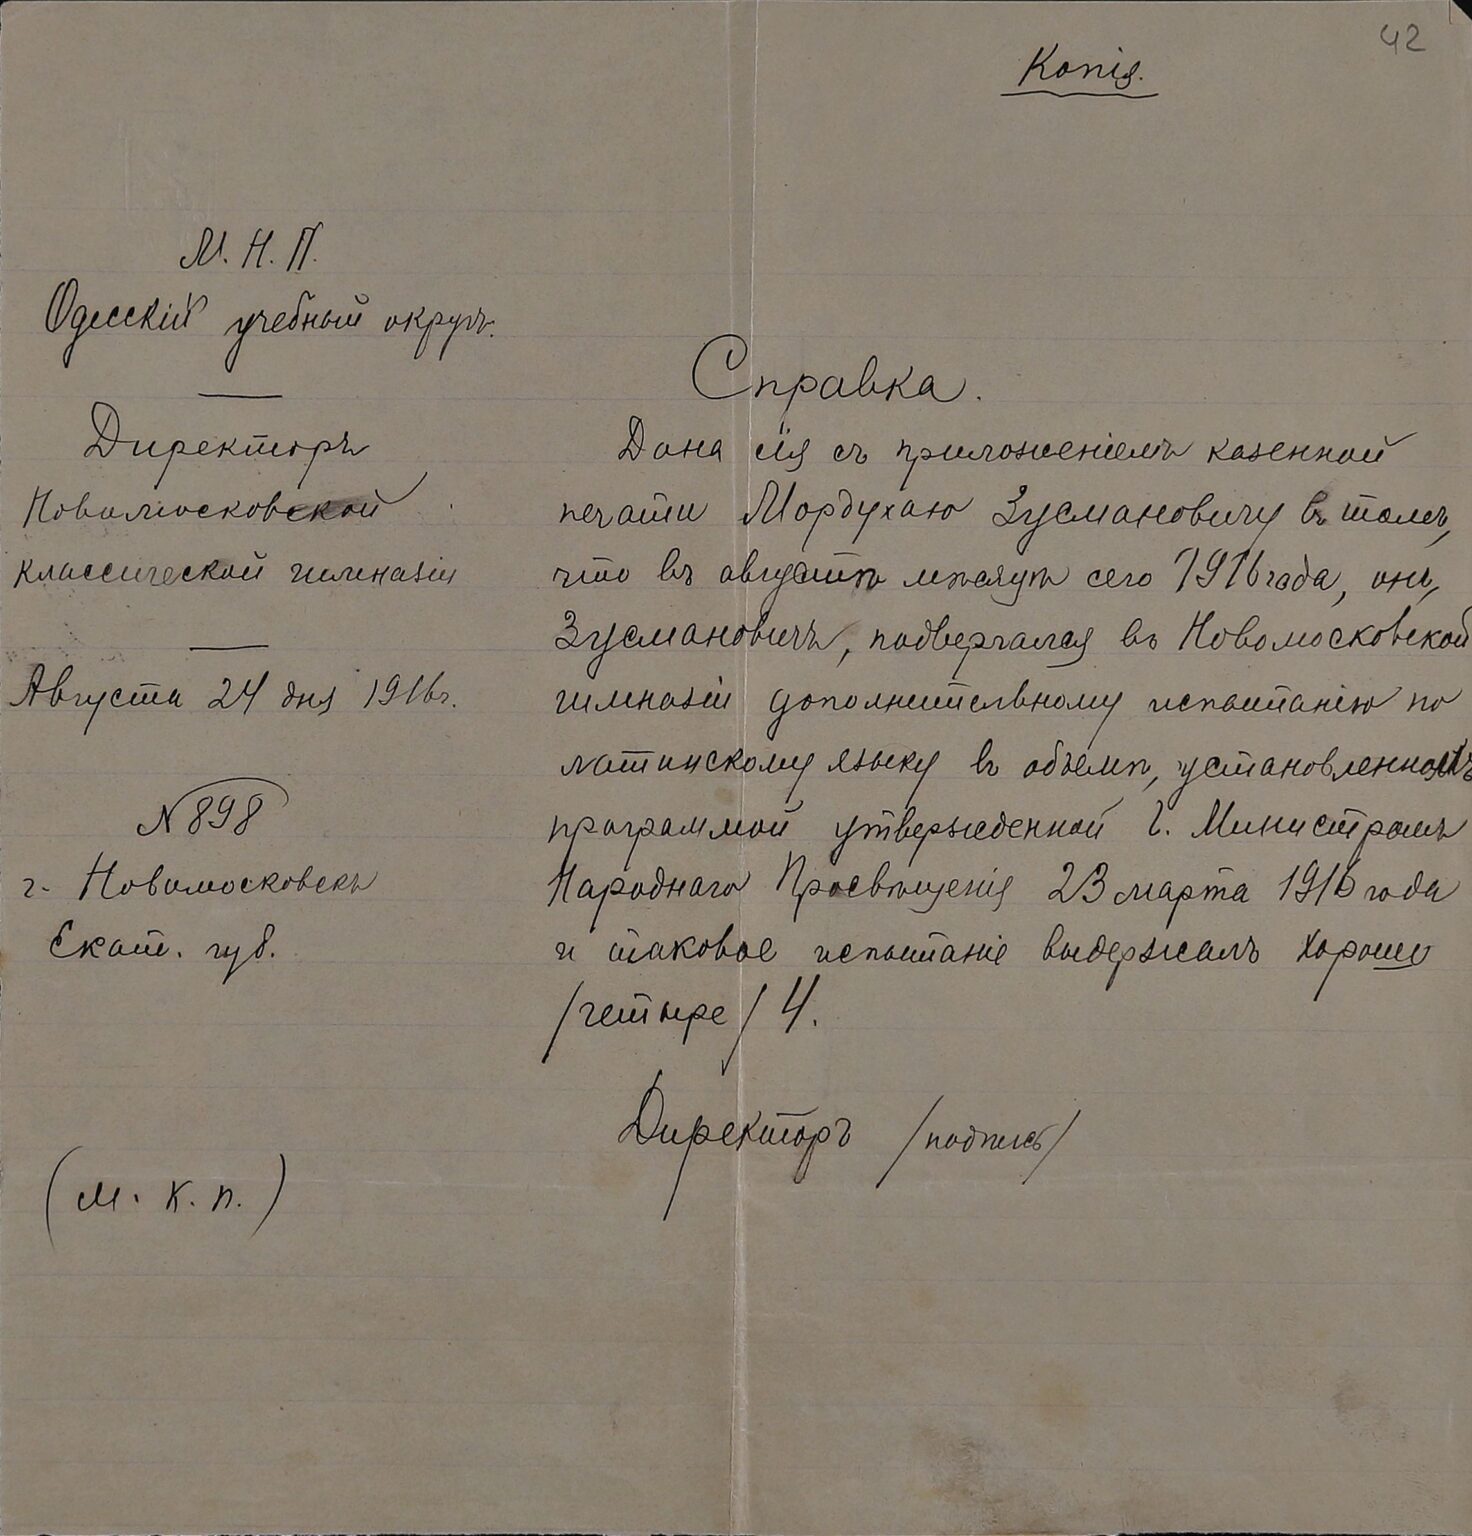 42
Копія.
М. Н. П.
Одесскій учебный округъ.
Директоръ
Новомосковской
классической гимназіи
Августа 24 дня 1916 г.
N 898
г. Новомосковскъ
Екат. губ.
(М. К. П.)
Справка.
Дана сія съ приложеніемъ казенной
печати Мордухаю Зусмановичу въ томъ,
что въ августѣ мѣсяцѣ сего 1916 года, онъ,
Зусмановичъ, подвергался въ Новомосковской
гимназіи дополнительному испытанію по
латинскому языку въ объемѣ, установленномъ
программой утвержденной Г. Министромъ
Народнаго Просвѣщенія 23 марта 1916 года
и таковое испытаніе выдержалъ хорошо
/четыре/ 4.
Директоръ /подпись/